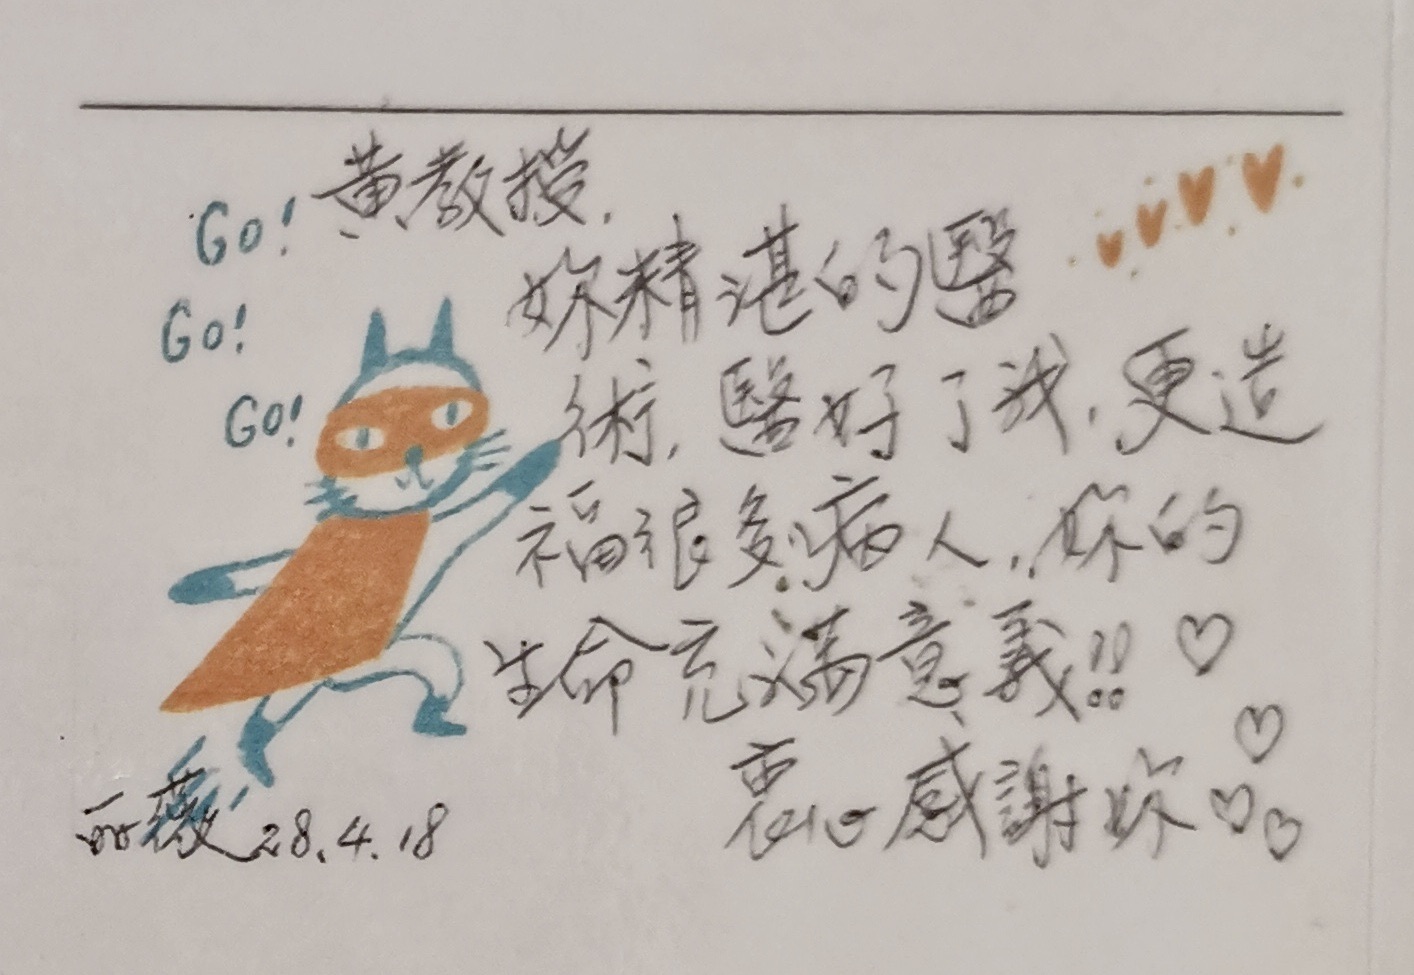 Go!
Go!
Go!
黃教授,
妳精湛的醫
術,醫好了我,更造
福很多病人,妳的
生命充滿意義!!
衷心感謝妳
薇 28.4.18